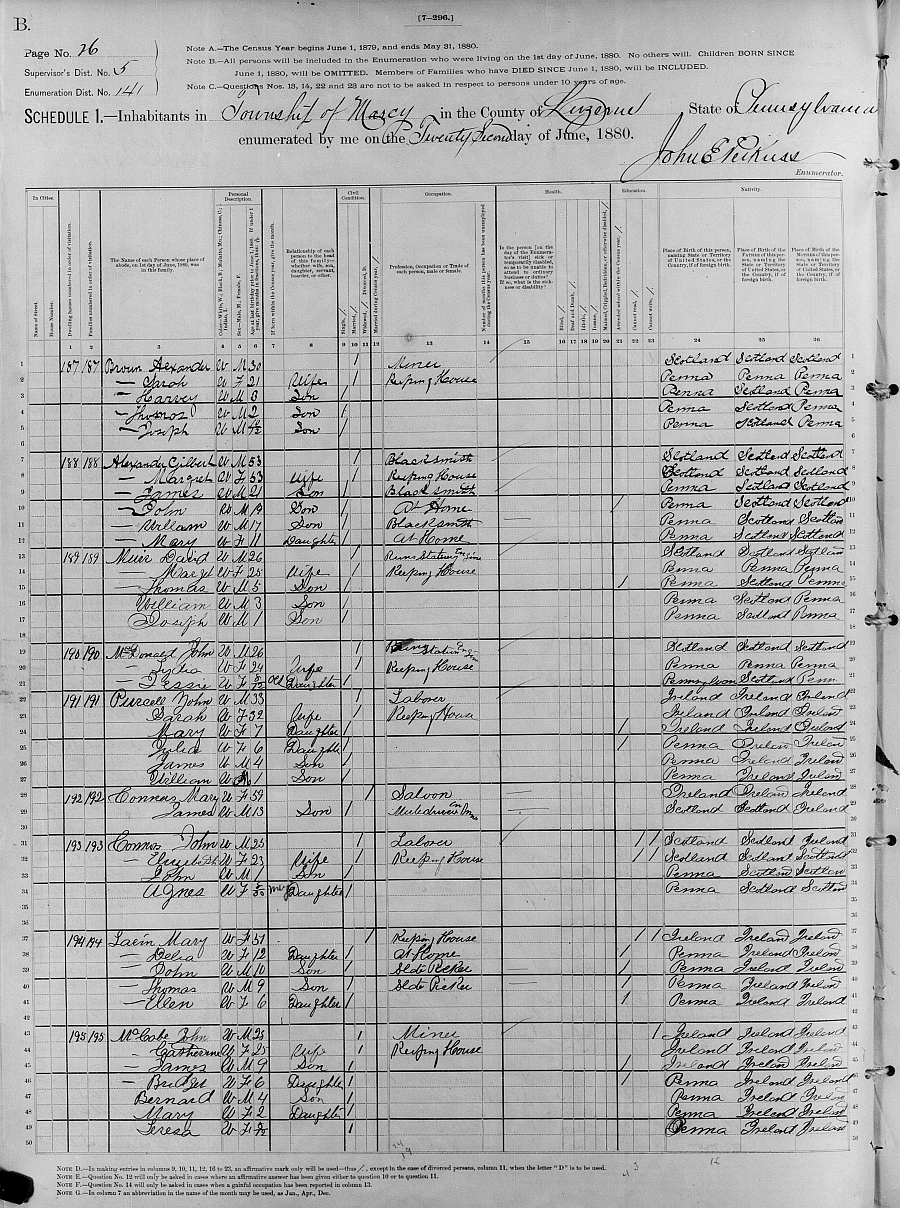 B.
[7—296.]
Page No. 26
Supervisor's Dist. No. 5
Enumeration Dist. No. 141
Note A.—The Census Year begins June 1, 1879, and ends May 31, 1880.
Note B.—All persons will be included in the Enumeration who were living on the 1st day of June, 1880. No others will. Children BORN SINCE
June 1, 1880, will be OMITTED. Members of Families who have DIED SINCE June 1, 1880, will be INCLUDED.
Note C.—Questions Nos. 13, 14, 22 and 23 are not to be asked in respect to persons under 10 years of age.
SCHEDULE 1.—Inhabitants in Township of Marcy, in the County of Luzerne State of Pennsylvania
enumerated by me on the Twenty Second day of June, 1880.
Enumerator.
In Cities. Personal Description. Civil Condition. Occupation. Health. Education. Nativity.
Name of Street. House Number. Dwelling houses numbered in order of visitation. Families numbered in order of visitation.
The Name of each Person whose place of abode, on 1st day of June, 1880, was in this family.
Relationship of each person to the head of this family—whether wife, son, daughter, servant, boarder, or other.
Profession, Occupation or Trade of each person, male or female.
Place of Birth of this person, naming State or Territory of United States, or the Country, if of foreign birth.
1 2 3 4 5 6 7 8 9 10 11 12 13 14 15 16 17 18 19 20 21 22 23 24 25 26
1 187 187 Brown Alexander W M 30 / Miner Scotland Scotland Scotland 1
2 — Sarah W F 21 Wife / Keeping House Penna Penna Penna 2
3 — Harvey W M 3 Son / Penna Scotland Penna 3
4 — Thomas W M 2 Son / Penna Scotland Penna 4
5 — Joseph W M Son / Penna Scotland Penna 5
6
7 188 188 Alexander Gilbert W M 53 / Blacksmith Scotland Scotland Scotland 7
8 — Margret W F 53 Wife / Keeping House Scotland Scotland Scotland 8
9 — James W M 21 Son / Blacksmith Penna Scotland Scotland 9
10 — John W M 19 Son / At Home / Penna Scotland Scotland 10
11 — William W M 17 Son / Blacksmith Penna Scotland Scotland 11
12 — Mary W F 11 Daughter / At Home Penna Scotland Scotland 12
13 189 189 Muir David W M 26 / Runs Stationy Engine Scotland Scotland Scotland 13
14 Margt W F 25 Wife / Keeping House Penna Penna Penna 14
15 — Thomas W M 5 Son / / Penna Scotland Penna 15
16 William W M 3 Son / Penna Scotland Penna 16
17 — Joseph W M 1 Son / Penna Scotland Penna 17
18
19 190 190 McDonald John W M 26 / Scotland Scotland Scotland 19
20 — Lydia W F 24 Wife / Keeping House Penna Penna Penna 20
21 — Jessie W F Oct Daughter / Pennsylvania Scotland Penn 21
22 191 191 Purcell John W M 33 / Laborer Ireland Ireland Ireland 22
23 Sarah W F 32 Wife / Keeping House Ireland Ireland Ireland 23
24 Mary W F 7 Daughter / / Ireland Ireland Ireland 24
25 Julia W F 6 Daughter / / Penna Ireland Ireland 25
26 James W M 4 Son / Penna Ireland Ireland 26
27 William W M 1 Son / Penna Ireland Ireland 27
28 192 192 Connors Mary W F 59 / Saloon Ireland Ireland Ireland 28
29 James W M 13 Son / Scotland Scotland Ireland 29
30
31 193 193 Connors John W M 25 / Laborer / / Scotland Scotland Ireland 31
32 — Elizabeth W F 23 Wife / Keeping House / / Scotland Scotland Scotland 32
33 John W M 1 Son / Penna Scotland Scotland 33
34 Agnes W F Daughter / Penna Scotland Scotland 34
35
36
37 194 194 Mary W F 51 / Keeping House / / Ireland Ireland Ireland 37
38 — Delia W F 12 Daughter / At Home / Penna Ireland Ireland 38
39 — John W M 10 Son / Slate Picker / Penna Ireland Ireland 39
40 — Thomas W M 9 Son / Slate Picker / Penna Ireland Ireland 40
41 — Ellen W F 6 Daughter / / Penna Ireland Ireland 41
42
43 195 195 McCabe John W M 25 / Miner / Ireland Ireland Ireland 43
44 — Catherine W F 25 Wife / Keeping House Ireland Ireland Ireland 44
45 — James W M 9 Son / / Ireland Ireland Ireland 45
46 — Bridget W F 6 Daughter / / Penna Ireland Ireland 46
47 Bernard W M 4 Son / Penna Ireland Ireland 47
48 Mary W F 2 Daughter / Penna Ireland Ireland 48
49 Teresa W F / Penna Ireland Ireland 49
50
Note D.—In making entries in columns 9, 10, 11, 12, 16 to 23, an affirmative mark only will be used—thus /, except in the case of divorced persons, column 11, when the letter "D" is to be used.
Note E.—Question No. 12 will only be asked in cases where an affirmative answer has been given either to question 10 or to question 11.
Note F.—Question No. 14 will only be asked in cases when a gainful occupation has been reported in column 13.
Note G.—In column 7 an abbreviation in the name of the month may be used, as Jan., Apr., Dec.